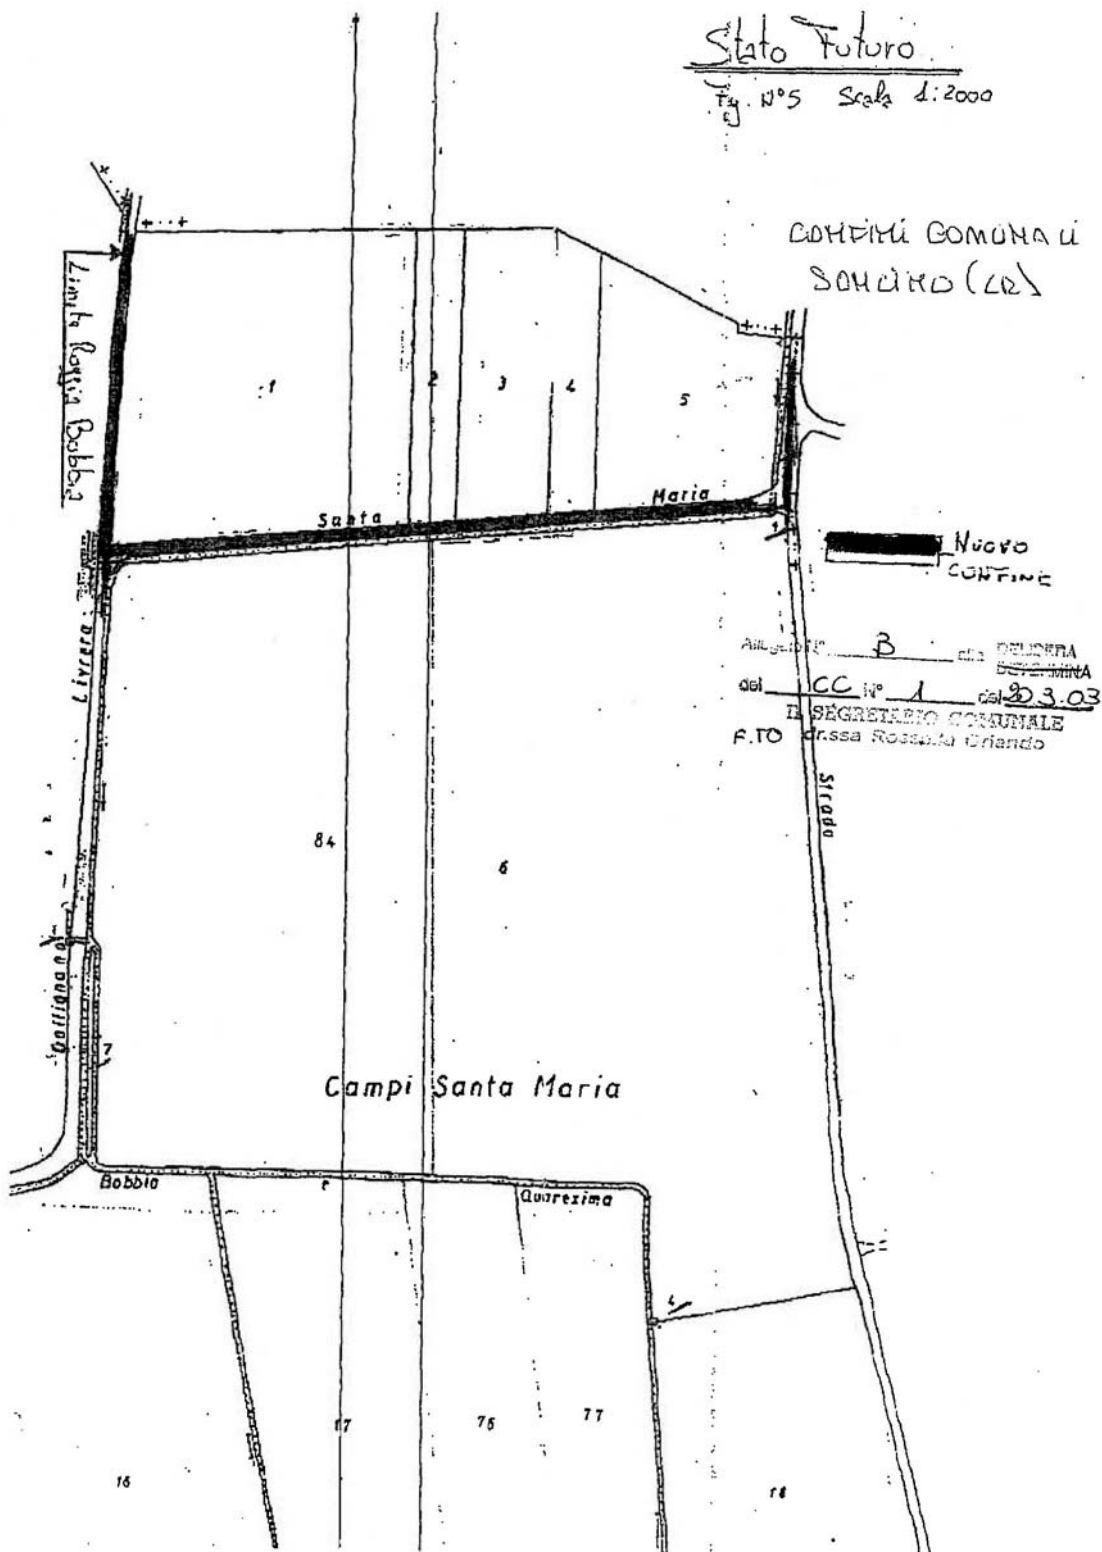 Stato Futuro
Fg. N°5 Scala 1:2000
CONFINI COMUNALI
SONCINO (CR)
Limite Roggia Babbia
1
2
3
4
5
Santa Maria
NUOVO
CONFINE
Livrera
Allegato N° B alla DELIBERA
DETERMINA
del CC N° 1 del 20.3.03
IL SEGRETARIO COMUNALE
F.TO dr.ssa Rossella Orlando
Strada
84
6
Gallignano
7
Campi Santa Maria
Babbio
e
Quarexima
4
17
76
77
16
18